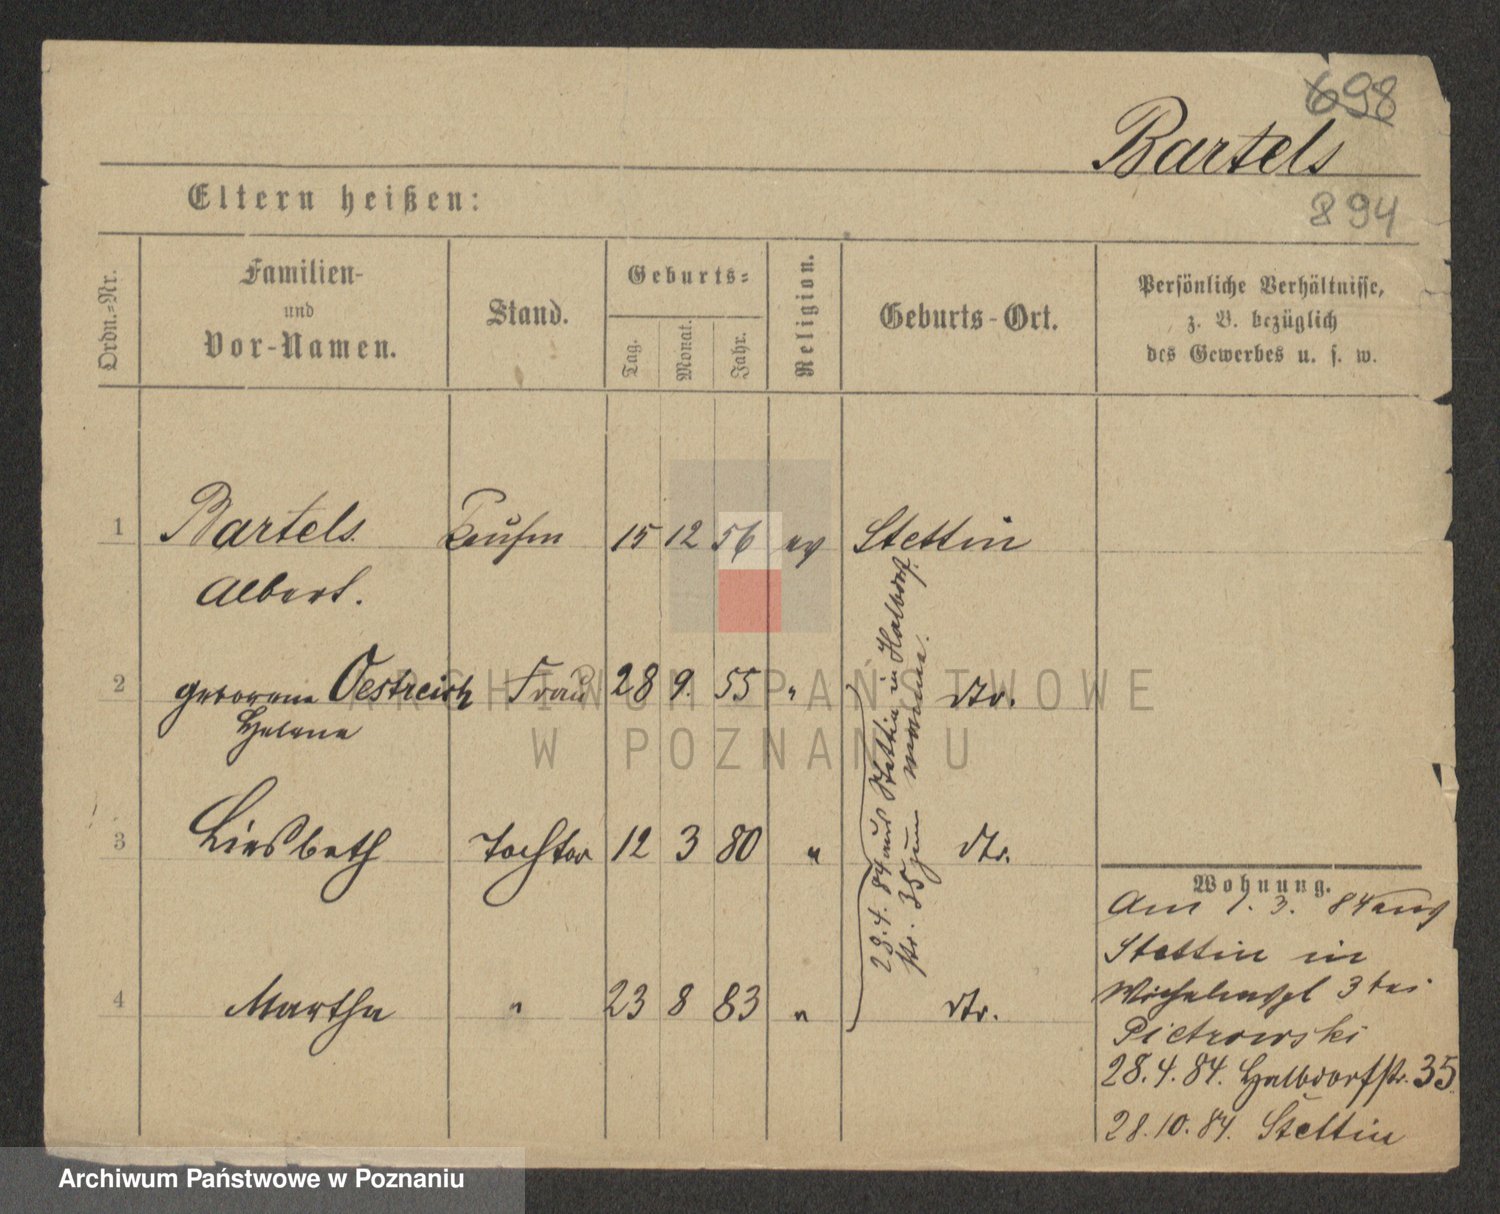 698
Bartels
Eltern heißen:
894
Ordn.-Nr.
Familien-
und
Vor-Namen.
Stand.
Geburts-
Tag.
Monat.
Jahr.
Religion.
Geburts-Ort.
Persönliche Verhältnisse,
z. B. bezüglich
des Gewerbes u. s. w.
1 Bartels Kaufm 15 12 56 ev Stettin
Albert.
2 geborene Oestreich Frau 28 9. 55 " dto.
Helene
3 Liesbeth Tochter 12 3 80 " dto.
4 Martha " 23 8 83 " dto.
28.4.84 aus Stettin in Halbdorf
str. 35
Wohnung.
Am 1. 3. 84 aus
Stettin in
3 bei
Pietrowski
28.4.84. Halbdorfstr. 35
28.10.84. Stettin
ARCHIWUM PAŃSTWOWE
W POZNANIU
Archiwum Państwowe w Poznaniu